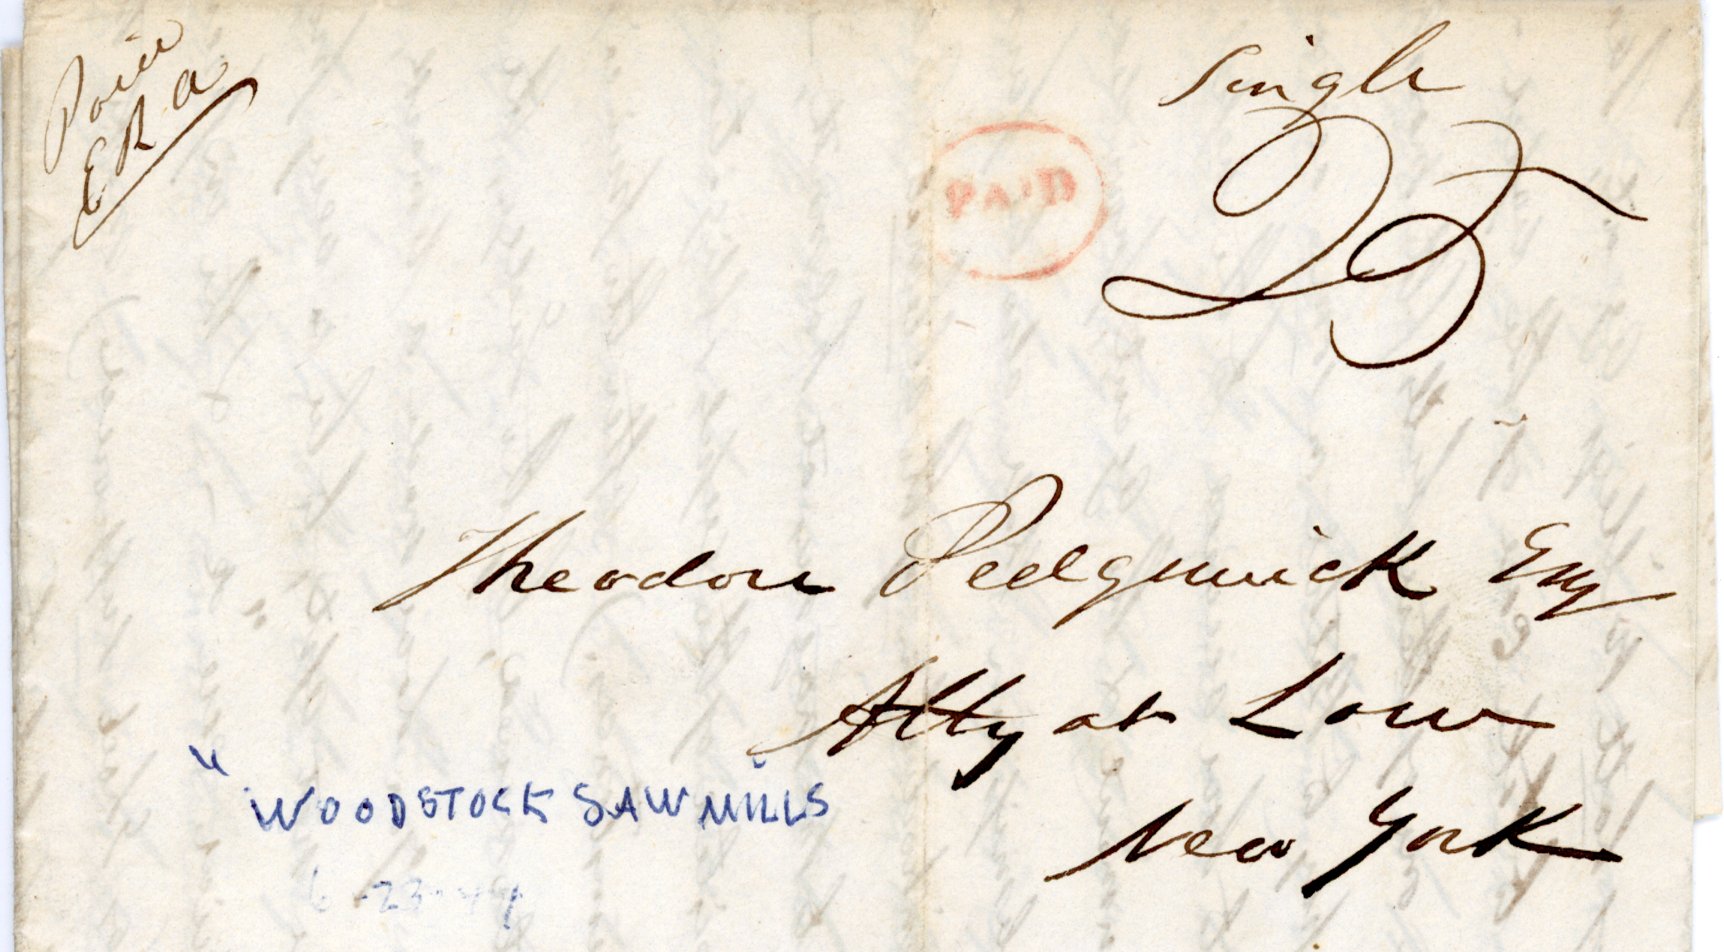 Paid
E R A
Single
PAID
25
Theodore Sedgwick Esq
Atty at Law
New York
"WOODSTOCK SAWMILLS"
6-23-44